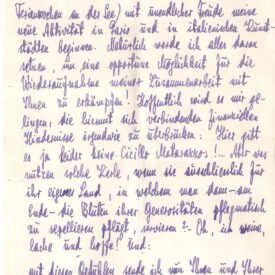 Ferienwochen an der See) mit unendlicher Freude meine
neue Aktivität in Paris und in italienischen Kunst-
städten beginnen. Natürlich werde ich alles daran
setzen, um eine opportune Möglichkeit für die
Wiederaufnahme meiner Zusammenarbeit mit
Ihnen zu erkämpfen. Hoffentlich wird es mir ge-
lingen, die hiermit sich verbindenden finanziellen
Hindernisse irgendwie zu überbrücken: Hier gibt
es ja leider keine Cicillo Matarazzos!... Aber was
nützen solche Kerle, wenn sie ausschließlich für
ihr eigenes Land, in welchem man dann am
Ende die Blüten ihrer Generosität pflegmatisch
zu repellieren pflegt, servieren? Oh, ich weine,
lache und hoffe! Und:
mit diesen Gefühlen sende ich von Ihnen und Ihrer